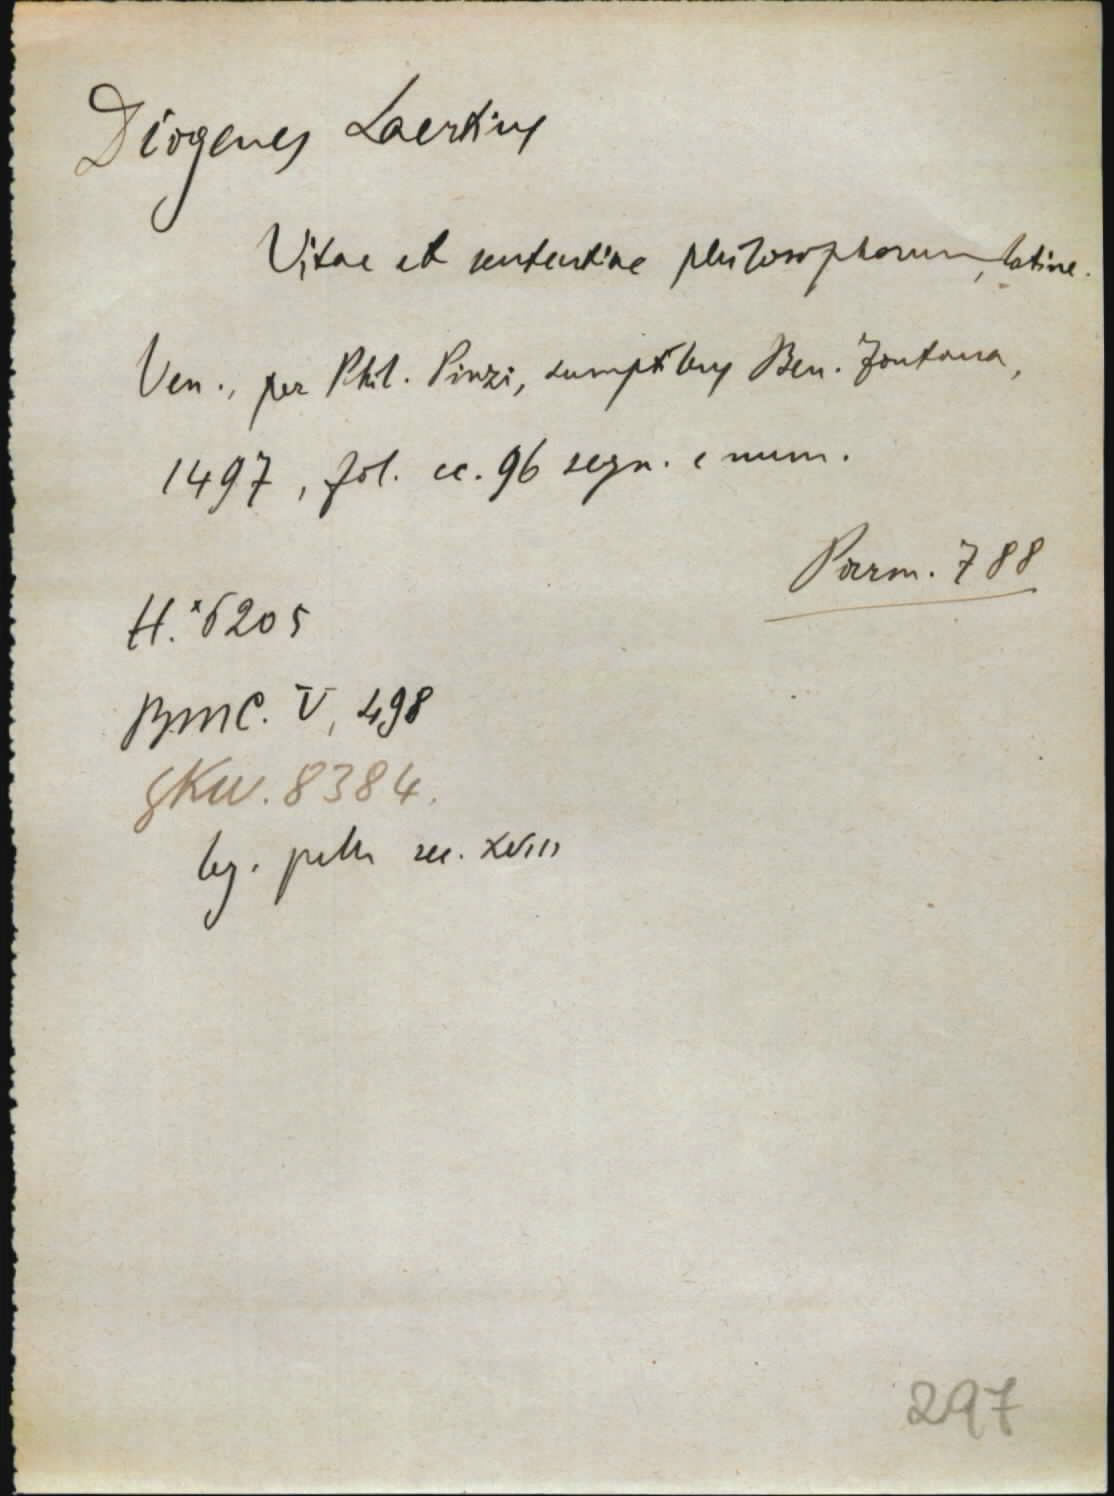 Diogenes Laertius
Vitae et sententiae philosophorum, latine.
Ven., per Phil. Pinzi, sumptibus Ben. Fontana,
1497, fol. cc. 96 segn. e num.
Parm. 788
H.*6205
BMC. V, 498
GKW. 8384.
leg. pelle sec. XVIII
297